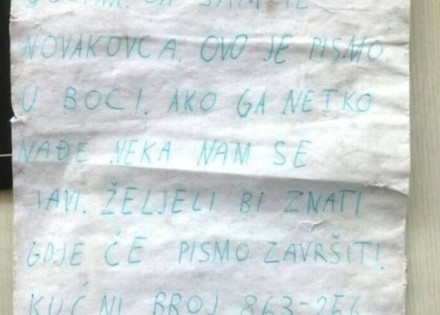 JA SAM IZ
NOVAKOVCA. OVO JE PISMO
U BOCI. AKO GA NETKO
NAĐE NEKA NAM SE
JAVI. ŽELJELI BI ZNATI
GDJE ĆE PISMO ZAVRŠITI!
KUĆNI BROJ 863-256